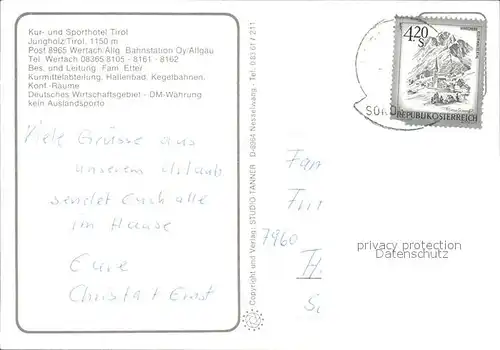 Kur- und Sporthotel Tirol
Jungholz/Tirol, 1150 m
Post 8965 Wertach Allg. Bahnstation Oy/Allgäu
Tel. Wertach 08365 8105 - 8161 - 8162
Bes. und Leitung: Fam. Ettel
Kurmittelabteilung, Hallenbad, Kegelbahnen,
Konf.-Räume
Deutsches Wirtschaftsgebiet - DM-Währung
kein Auslandsporto
Viele Grüsse aus
unserem Urlaub
sendet Euch alle
im Hause
Eure
Christa + Ernst
Copyright und Verlag: STUDIO TANNER D-8964 Nesselwang - Tel. 08361 / 211
4.20
S
REPUBLIK ÖSTERREICH
Fam
7960
privacy protection
Datenschutz